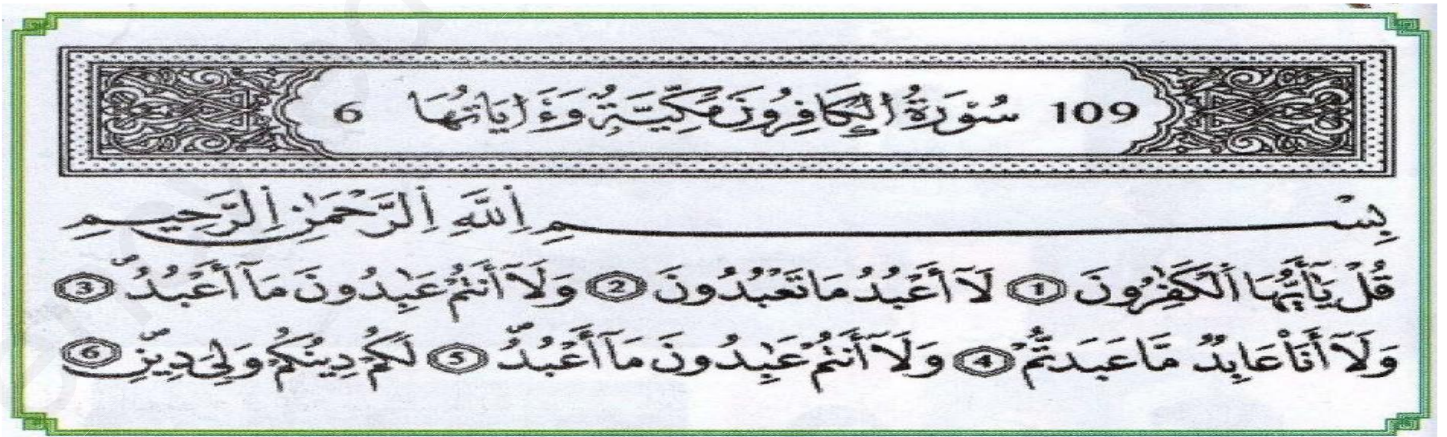 109 سُورَةُ الْكَافِرُونَ مَكِّيَّةٌ وَءَايَاتُهَا 6
بِسْمِ اِللَّهِ اِلرَّحْمَٰنِ اِلرَّحِيمِ
قُلْ يَٰٓأَيُّهَا اَلْكَٰفِرُونَ 1 لَآ أَعْبُدُ مَا تَعْبُدُونَ 2 وَلَآ أَنتُمْ عَٰبِدُونَ مَآ أَعْبُدُ 3
وَلَآ أَنَا۠ عَابِدٞ مَّا عَبَدتُّمْ 4 وَلَآ أَنتُمْ عَٰبِدُونَ مَآ أَعْبُدُ 5 لَكُمْ دِينُكُمْ وَلِيَ دِينِ 6